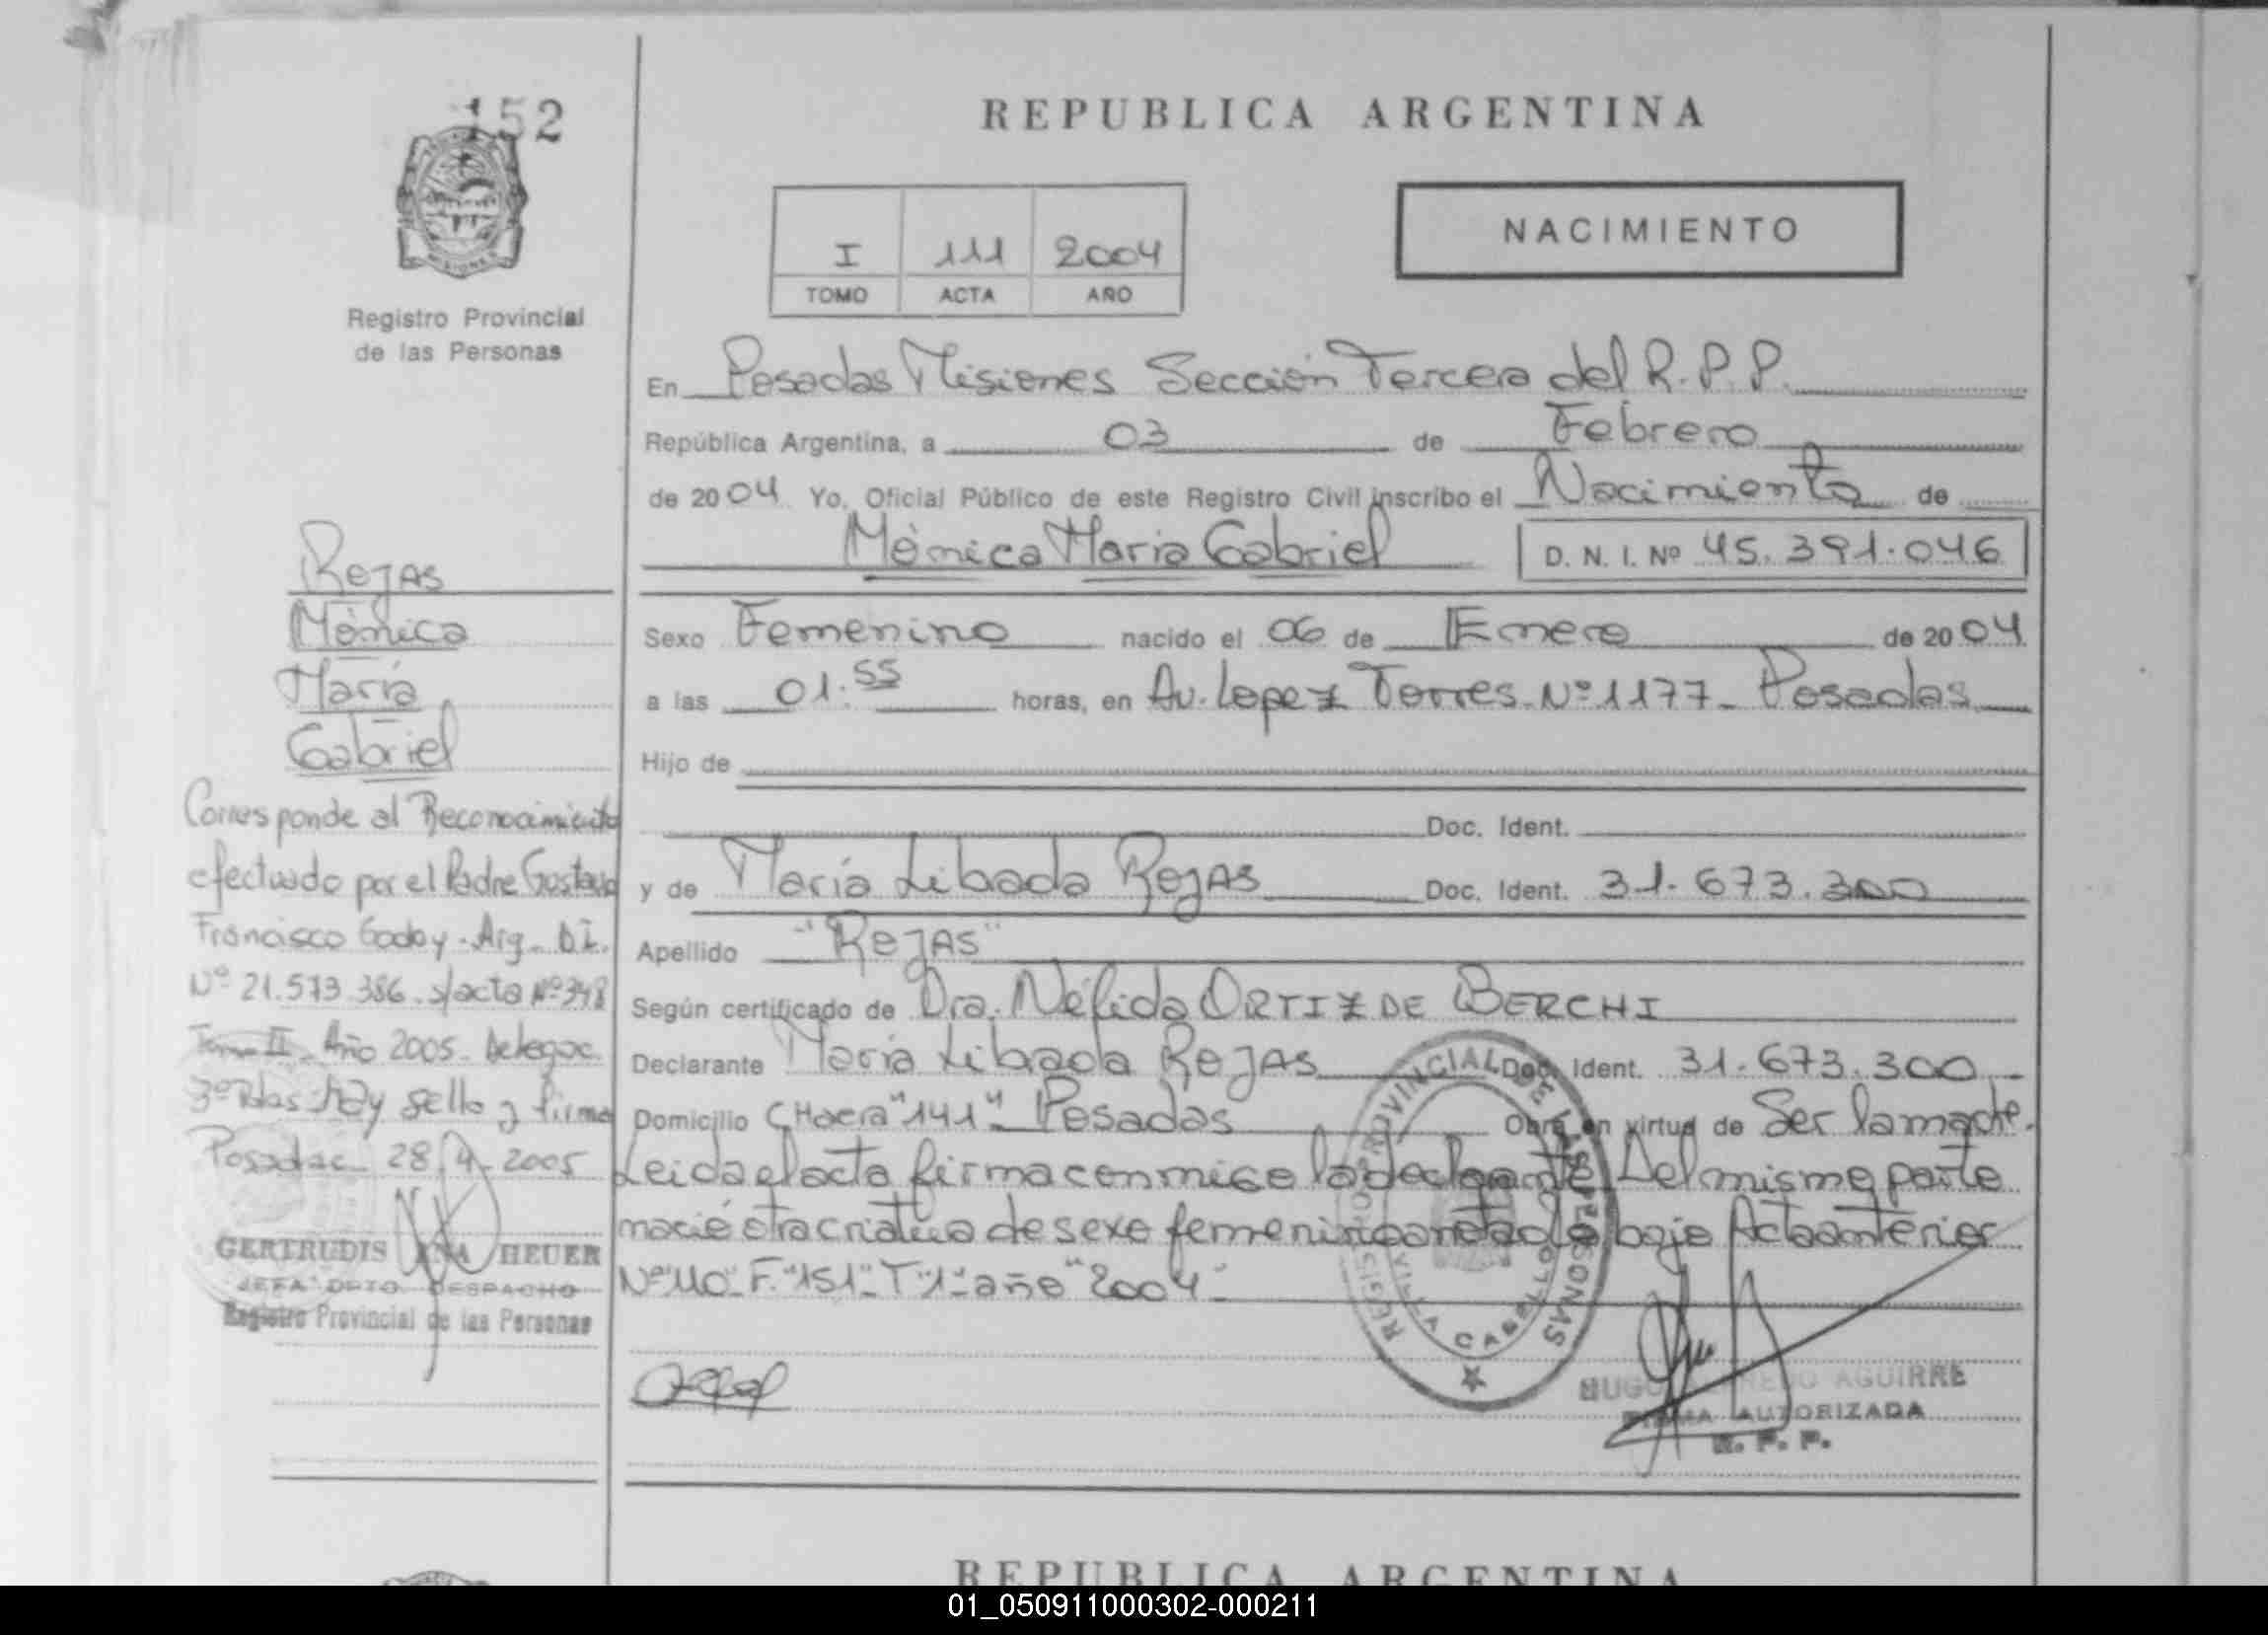 152
REPUBLICA ARGENTINA
NACIMIENTO
I 111 2004
TOMO ACTA AÑO
MISIONES
Registro Provincial
de las Personas
En Posadas Misiones Sección Tercera del R.P.P.
República Argentina, a 03 de Febrero
de 2004 Yo, Oficial Público de este Registro Civil inscribo el Nacimiento de
Mónica María Gabriel D. N. I. Nº 45.391.046
Sexo Femenino nacido el 06 de Enero de 2004
a las 01.55 horas, en Av. Lopez Torres Nº 1177- Posadas
Hijo de
Doc. Ident.
y de María Librada Rojas Doc. Ident. 31.673.300
Apellido "Rojas"
Según certificado de Dra. Nélida ORTIZ DE BERCHI
Declarante María Librada Rojas Doc. Ident. 31.673.300
Domicilio CHacra "141" Posadas Obra en virtud de Ser la madre.
Leida el acta firma conmigo la declarante. Del mismo parte
nació otra criatura de sexo femenino anotada bajo Acta anterior
Nº "110" F. "151" T "1" año "2004"
Rojas
Mónica
María
Gabriel
Corresponde al Reconocimiento
efectuado por el Padre Gustavo
Francisco Godoy - Arg. D.I.
Nº 21.573.386. s/acta Nº 348
Tomo II - Año 2005 - Delegac.
3º Pdas Hay sello y firma
Posadas 28.4.2005
GERTRUDIS ANA HEUER
JEFA DPTO DESPACHO
Registro Provincial de las Personas
REGISTRO PROVINCIAL DE LAS PERSONAS
VILLA CABELLO
HUGO AGUIRRE
FIRMA AUTORIZADA
R. P. P.
REPUBLICA ARGENTINA
01_050911000302-000211